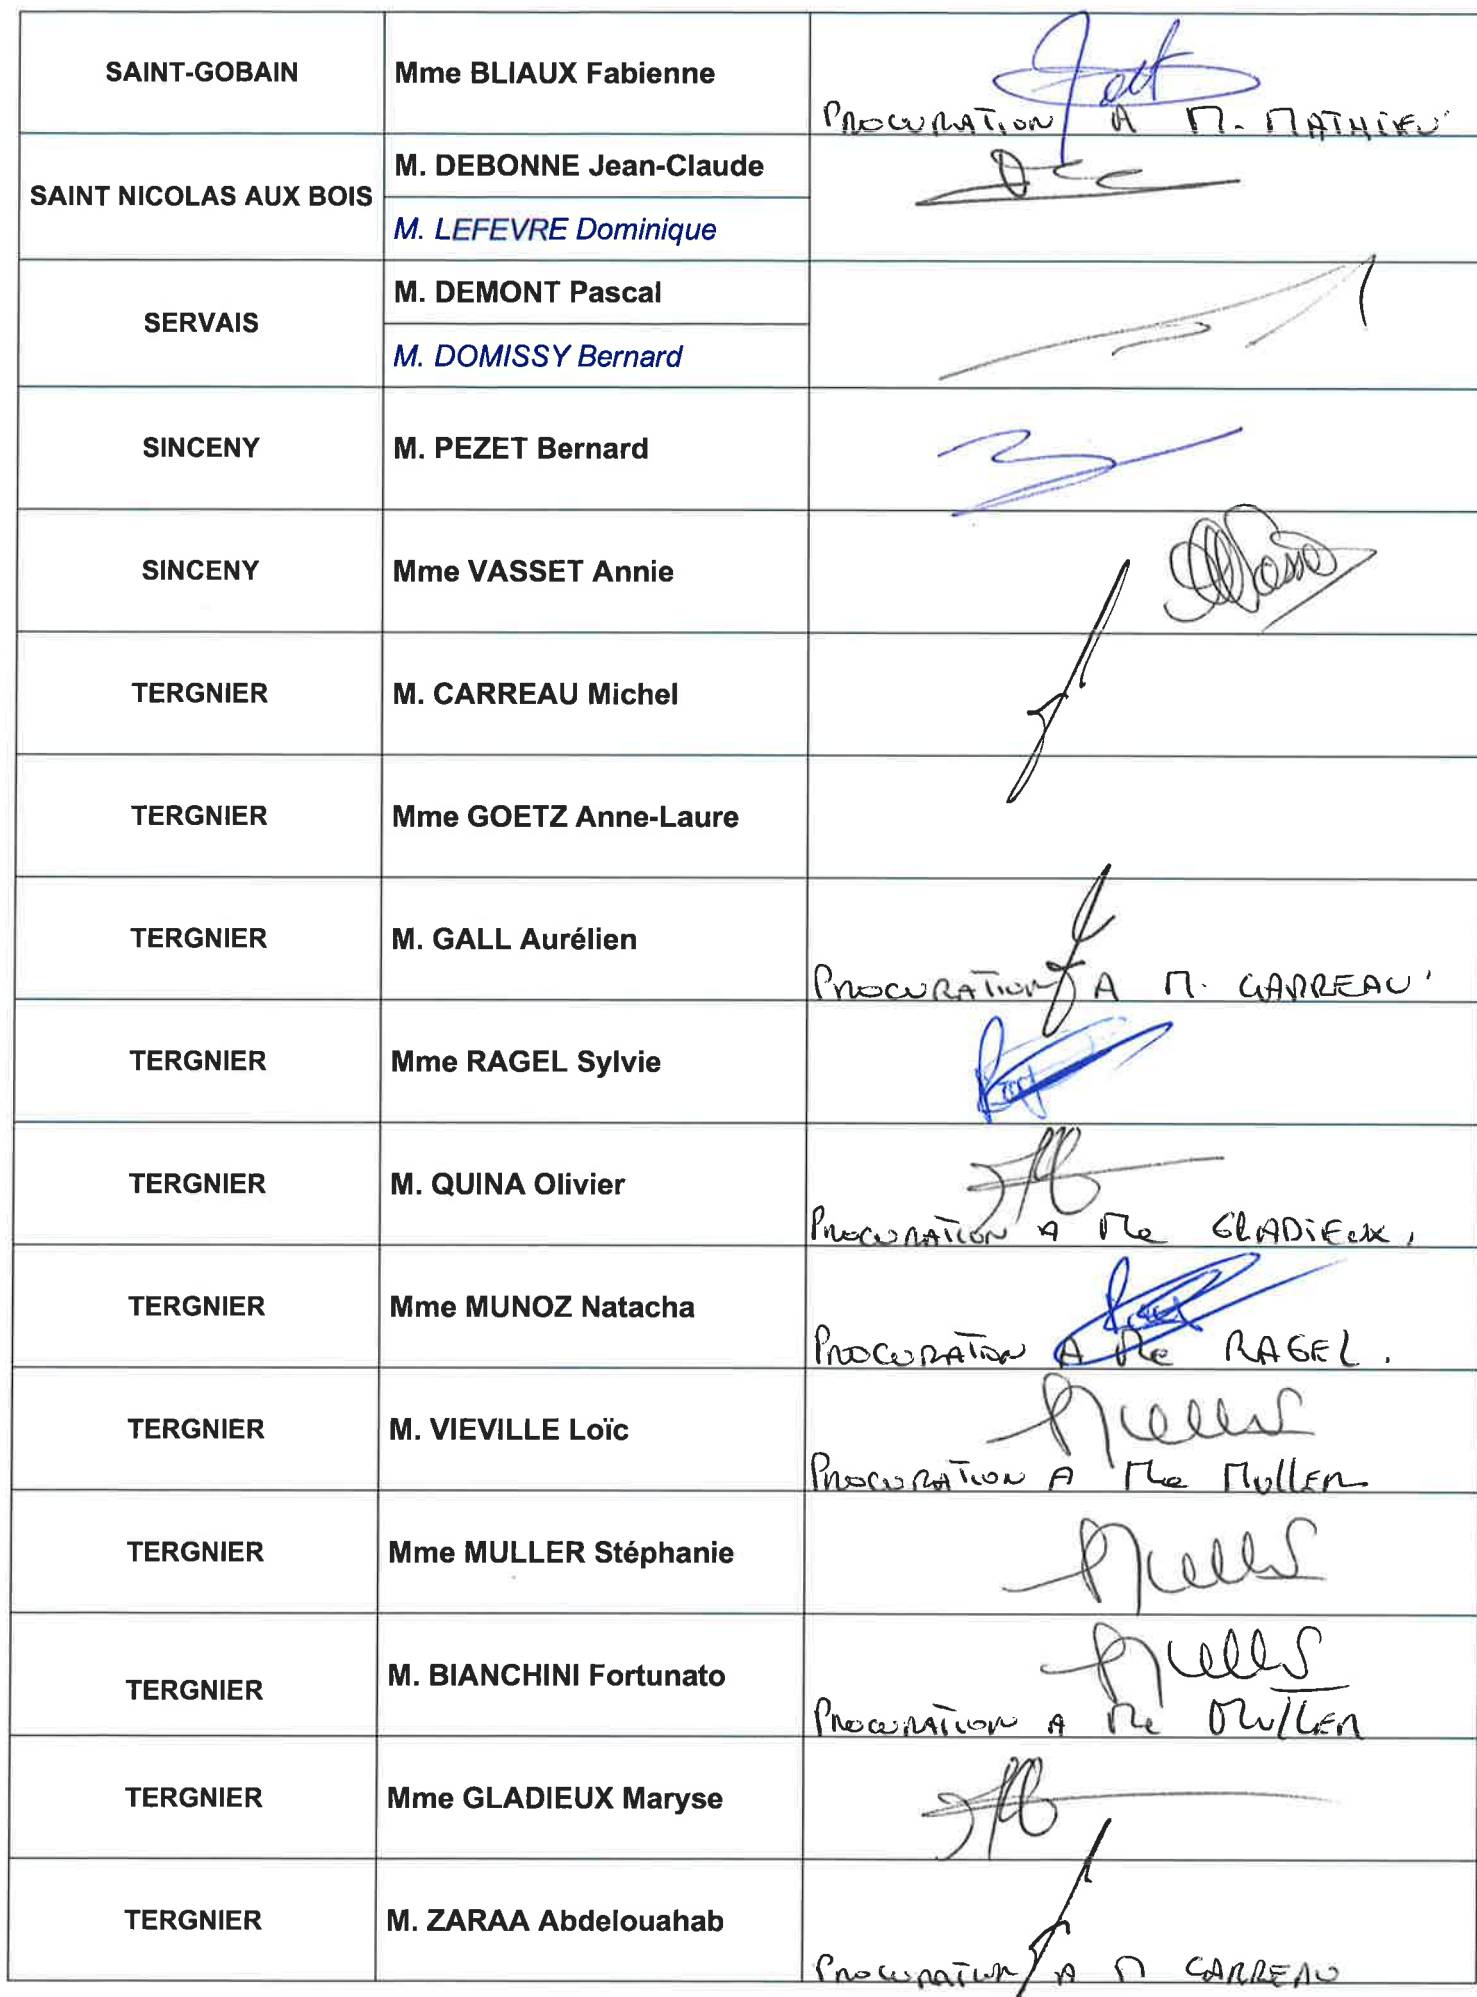 SAINT-GOBAIN
Mme BLIAUX Fabienne
PROCURATION A M. MATHIEU
SAINT NICOLAS AUX BOIS
M. DEBONNE Jean-Claude
M. LEFEVRE Dominique
SERVAIS
M. DEMONT Pascal
M. DOMISSY Bernard
SINCENY
M. PEZET Bernard
SINCENY
Mme VASSET Annie
TERGNIER
M. CARREAU Michel
TERGNIER
Mme GOETZ Anne-Laure
TERGNIER
M. GALL Aurélien
PROCURATION A M. CARREAU
TERGNIER
Mme RAGEL Sylvie
TERGNIER
M. QUINA Olivier
PROCURATION A Me GLADIEUX.
TERGNIER
Mme MUNOZ Natacha
PROCURATION A Me RAGEL.
TERGNIER
M. VIEVILLE Loïc
PROCURATION A Me MULLER
TERGNIER
Mme MULLER Stéphanie
TERGNIER
M. BIANCHINI Fortunato
PROCURATION A Me MULLER
TERGNIER
Mme GLADIEUX Maryse
TERGNIER
M. ZARAA Abdelouahab
PROCURATION A M CARREAU